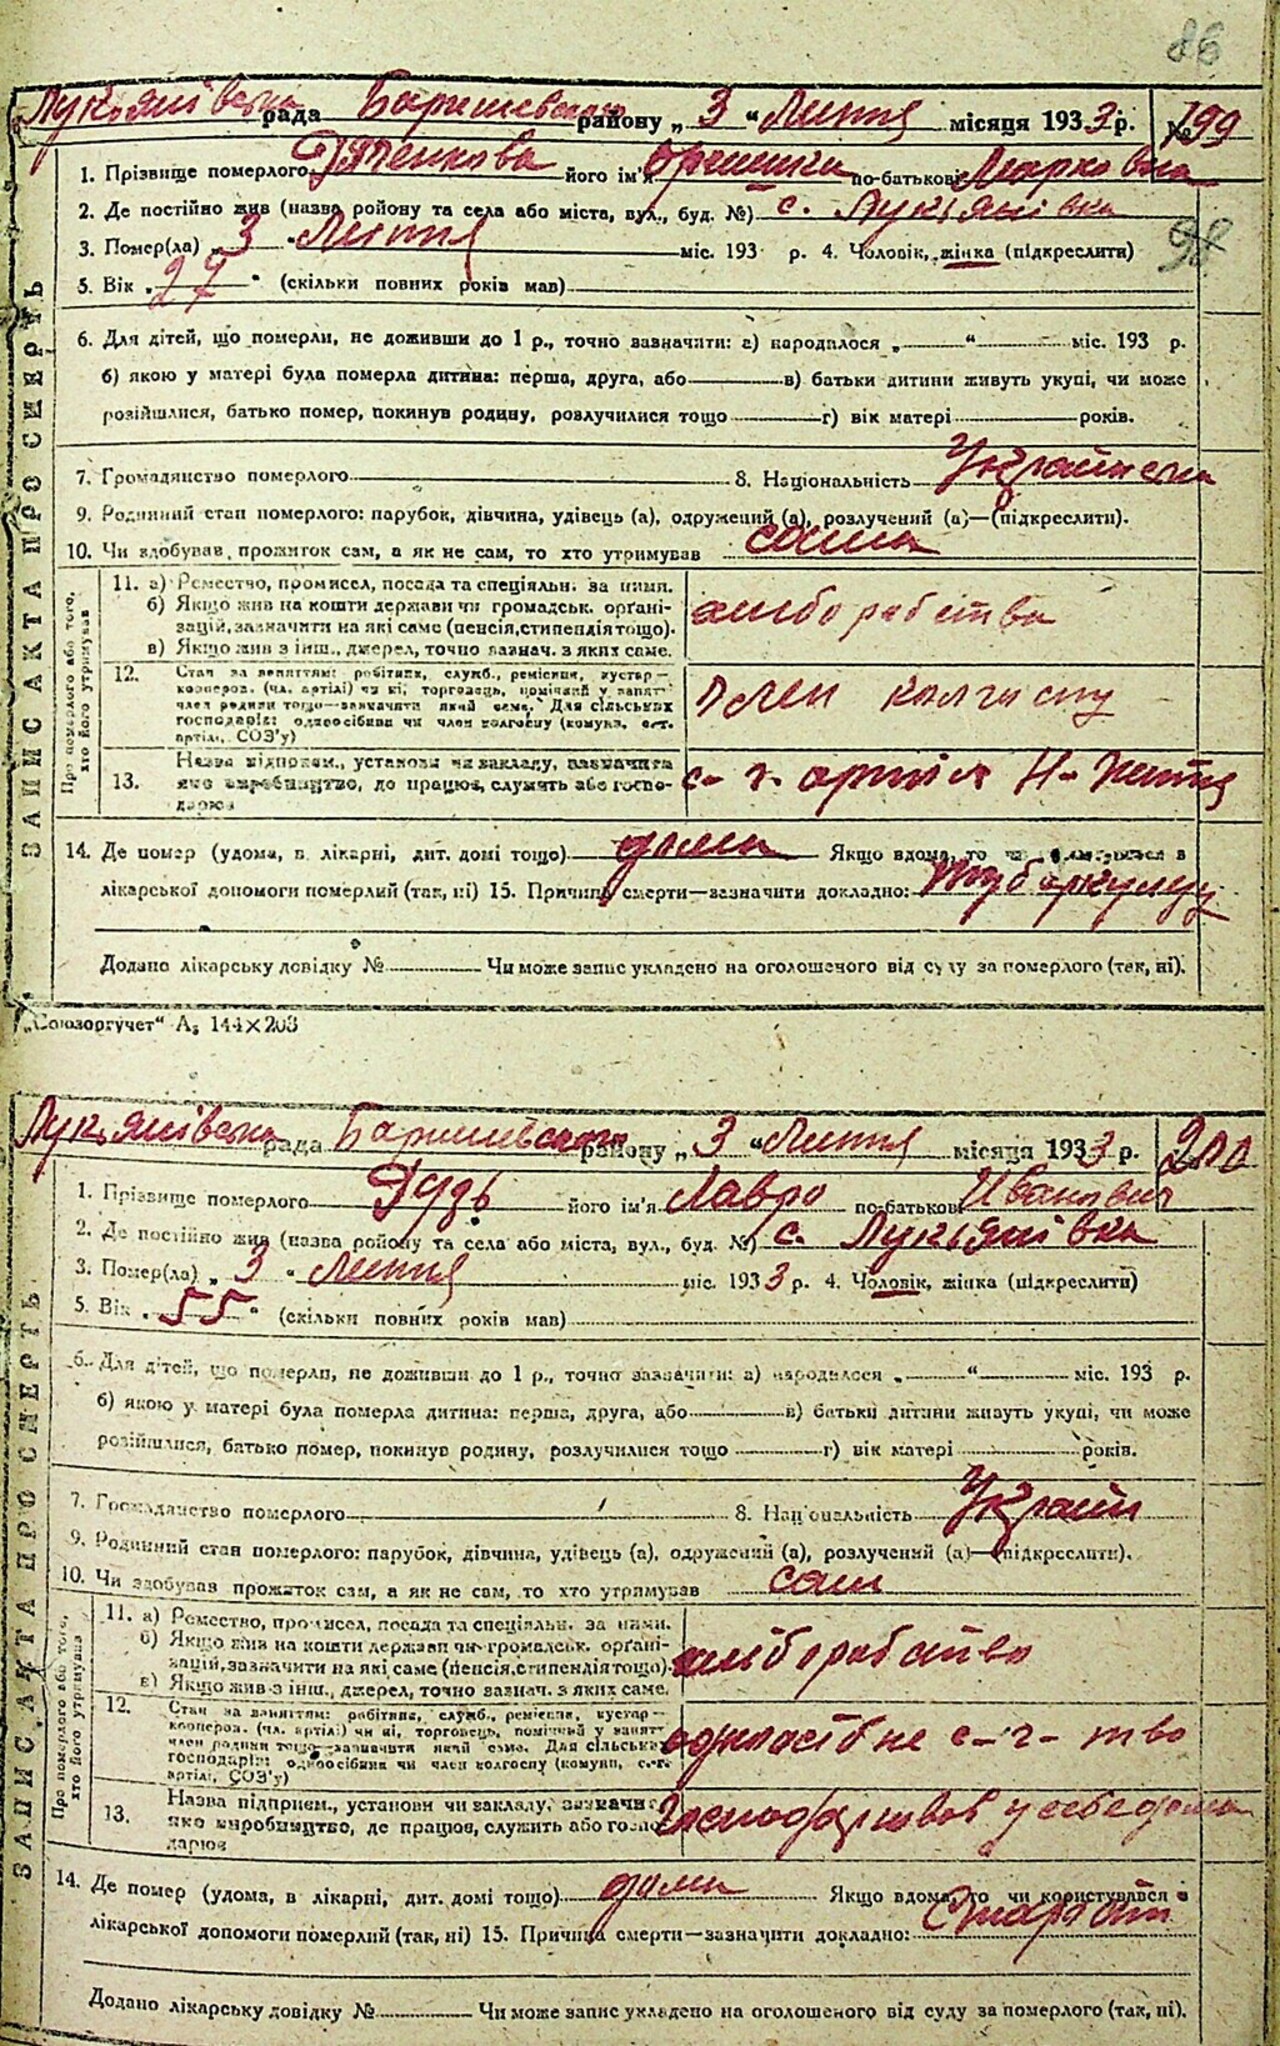 86
Лукьянівська рада Баришевського району „ 3 “ Липня місяця 1933 р. № 199
1. Прізвище померлого Дяченкова його ім'я Оришка по-батькові Марковна
2. Де постійно жив (назва району та села або міста, вул., буд. №) с. Лукьянівка
3. Помер(ла) „ 3 “ Липня міс. 193 р. 4. Чоловік, жінка (підкреслити)
98
5. Вік „ 27 “ (скільки повних років мав)
6. Для дітей, що померли, не доживши до 1 р., точно зазначити: а) народилося „ “ міс. 193 р.
б) якою у матері була померла дитина: перша, друга, або в) батьки дитини живуть укупі, чи може
розійшлися, батько помер, покинув родину, розлучилися тощо г) вік матері років.
7. Громадянство померлого 8. Національність Українска
9. Родинний стан померлого: парубок, дівчина, удівець (а), одружений (а), розлучений (а)—(підкреслити).
10. Чи здобував прожиток сам, а як не сам, то хто утримував сама
ЗАПИС АКТА ПРО СМЕРТЬ
Про померлого або того, хто його утримував
11. а) Ремество, промисел, посада та спеціяльн. за ними.
б) Якщо жив на кошти держави чи громадськ. орґані-
зацій, зазначити на які саме (пенсія, стипендія тощо).
в) Якщо жив з інш., джерел, точно зазнач. з яких саме.
хліборобство
12. Стан за заняттям: робітник, служб., ремісник, кустар—
кооперов. (чл. артілі) чи ні, торговець, помічний у занят.
член родини тощо—зазначити який саме. Для сільських
господарів: одноосібник чи член колгоспу (комуни, с.-г.
артілі, СОЗ'у)
член колгоспу
13. Назва підприєм., установи чи закладу, зазначити
яке виробництво, де працює, служить або госпо-
дарює
с-г. артіль Н-Життя
14. Де помер (удома, в лікарні, дит. домі тощо) дома Якщо вдома, то чи користувався з
лікарської допомоги померлий (так, ні) 15. Причина смерти—зазначити докладно: туберкулиоз
Додано лікарську довідку № Чи може запис укладено на оголошеного від суду за померлого (так, ні).
„Союзоргучет“ А₅ 144×203
Лукьянівська рада Баришевського району „ 3 “ Липня місяця 1933 р. 200
1. Прізвище померлого Дудь його ім'я Лавро по-батькові Иванович
2. Де постійно жив (назва району та села або міста, вул., буд. №) с. Лукьянівка
3. Помер(ла) „ 3 “ Липня міс. 1933 р. 4. Чоловік, жінка (підкреслити)
5. Вік „ 55 “ (скільки повних років мав)
6. Для дітей, що померли, не доживши до 1 р., точно зазначити: а) народилося „ “ міс. 193 р.
б) якою у матері була померла дитина: перша, друга, або в) батьки дитини живуть укупі, чи може
розійшлися, батько помер, покинув родину, розлучилися тощо г) вік матері років.
7. Громадянство померлого 8. Національність Україн
9. Родинний стан померлого: парубок, дівчина, удівець (а), одружений (а), розлучений (а)—(підкреслити).
10. Чи здобував прожиток сам, а як не сам, то хто утримував сам
ЗАПИС АКТА ПРО СМЕРТЬ
Про померлого або того, хто його утримував
11. а) Ремество, промисел, посада та спеціяльн. за ними.
б) Якщо жив на кошти держави чи громадськ. орґані-
зацій, зазначити на які саме (пенсія, стипендія тощо).
в) Якщо жив з інш., джерел, точно зазнач. з яких саме.
хліборобство
12. Стан за заняттям: робітник, служб., ремісник, кустар—
кооперов. (чл. артілі) чи ні, торговець, помічний у занят.
член родини тощо—зазначити який саме. Для сільських
господарів: одноосібник чи член колгоспу (комуни, с.-г.
артілі, СОЗ'у)
одноосібне с-г-тво
13. Назва підприєм., установи чи закладу, зазначити
яке виробництво, де працює, служить або госпо-
дарює
господарював у себе дома
14. Де помер (удома, в лікарні, дит. домі тощо) дома Якщо вдома, то чи користувався з
лікарської допомоги померлий (так, ні) 15. Причина смерти—зазначити докладно:
Додано лікарську довідку № Чи може запис укладено на оголошеного від суду за померлого (так, ні).